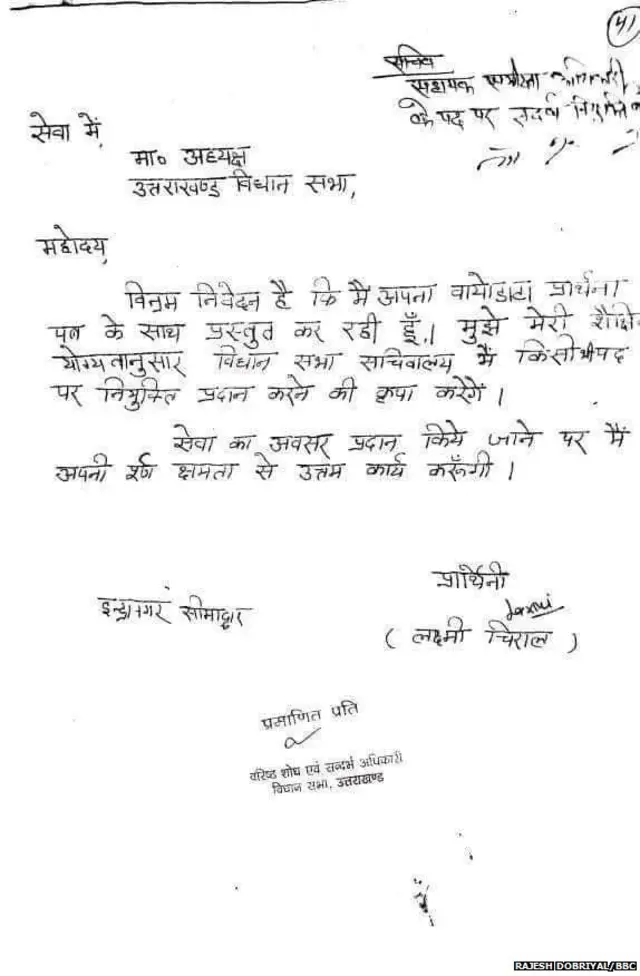 41
सचिव
सहायक
के पद पर तदर्थ नियुक्ति
सेवा में,
मा० अध्यक्ष
उत्तराखण्ड विधान सभा,
महोदय,
विनम्र निवेदन है कि मैं अपना बायोडाटा प्रार्थना
पत्र के साथ प्रस्तुत कर रही हूँ। मुझे मेरी शैक्षि
योग्यतानुसार विधान सभा सचिवालय में किसी भी पद
पर नियुक्ति प्रदान करने की कृपा करेगें।
सेवा का अवसर प्रदान किये जाने पर मैं
अपनी क्षमता से उत्तम कार्य करूँगी।
प्रार्थिनी
इन्द्रानगर सीमाद्वार
Laxmi
( लक्ष्मी चिराल )
प्रमाणित प्रति
वरिष्ठ शोध एवं सन्दर्भ अधिकारी
विधान सभा, उत्तराखण्ड
RAJESH DOBRIYAL/BBC